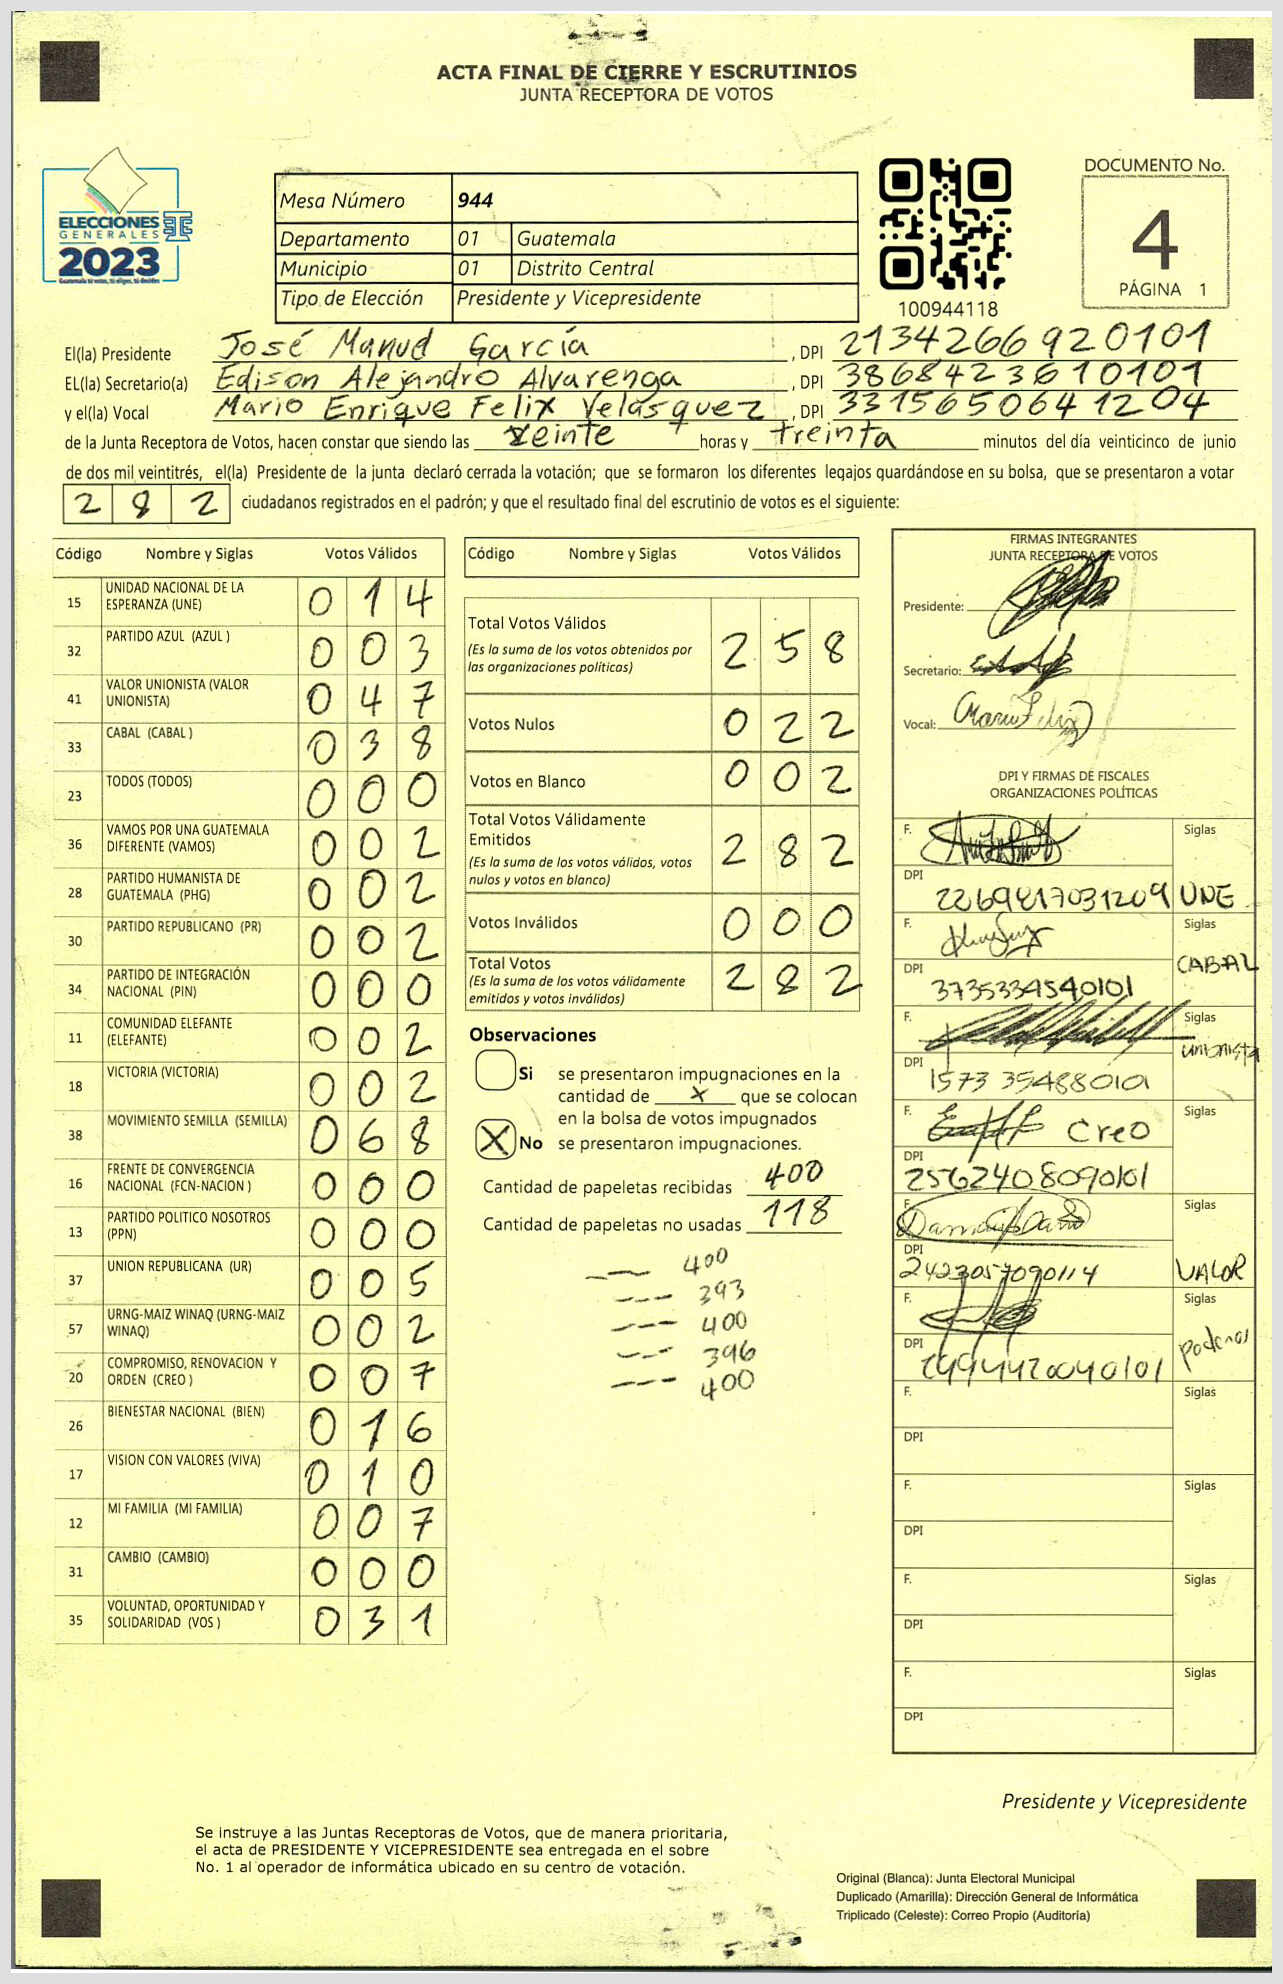 ACTA FINAL DE CIERRE Y ESCRUTINIOS
JUNTA RECEPTORA DE VOTOS
ELECCIONES
GENERALES
2023
Guatemala tú votas, tú eliges, tú decides
Mesa Número 944
Departamento 01 Guatemala
Municipio 01 Distrito Central
Tipo de Elección Presidente y Vicepresidente
100944118
DOCUMENTO No.
4
PÁGINA 1
El(la) Presidente José Manuel García , DPI 2134266920101
EL(la) Secretario(a) Edison Alejandro Alvarenga , DPI 3868423610101
y el(la) Vocal Mario Enrique Felix Velasquez , DPI 3315650641204
de la Junta Receptora de Votos, hacen constar que siendo las veinte horas y treinta minutos del día veinticinco de junio
de dos mil veintitrés, el(la) Presidente de la junta declaró cerrada la votación; que se formaron los diferentes legajos guardándose en su bolsa, que se presentaron a votar
2 8 2 ciudadanos registrados en el padrón; y que el resultado final del escrutinio de votos es el siguiente:
Código Nombre y Siglas Votos Válidos
15 UNIDAD NACIONAL DE LA ESPERANZA (UNE) 0 1 4
32 PARTIDO AZUL (AZUL ) 0 0 3
41 VALOR UNIONISTA (VALOR UNIONISTA) 0 4 7
33 CABAL (CABAL ) 0 3 8
23 TODOS (TODOS) 0 0 0
36 VAMOS POR UNA GUATEMALA DIFERENTE (VAMOS) 0 0 2
28 PARTIDO HUMANISTA DE GUATEMALA (PHG) 0 0 2
30 PARTIDO REPUBLICANO (PR) 0 0 2
34 PARTIDO DE INTEGRACIÓN NACIONAL (PIN) 0 0 0
11 COMUNIDAD ELEFANTE (ELEFANTE) 0 0 2
18 VICTORIA (VICTORIA) 0 0 2
38 MOVIMIENTO SEMILLA (SEMILLA) 0 6 8
16 FRENTE DE CONVERGENCIA NACIONAL (FCN-NACION ) 0 0 0
13 PARTIDO POLITICO NOSOTROS (PPN) 0 0 0
37 UNION REPUBLICANA (UR) 0 0 5
57 URNG-MAIZ WINAQ (URNG-MAIZ WINAQ) 0 0 2
20 COMPROMISO, RENOVACION Y ORDEN (CREO ) 0 0 7
26 BIENESTAR NACIONAL (BIEN) 0 1 6
17 VISION CON VALORES (VIVA) 0 1 0
12 MI FAMILIA (MI FAMILIA) 0 0 7
31 CAMBIO (CAMBIO) 0 0 0
35 VOLUNTAD, OPORTUNIDAD Y SOLIDARIDAD (VOS ) 0 3 1
Código Nombre y Siglas Votos Válidos
Total Votos Válidos 2 5 8
(Es la suma de los votos obtenidos por
las organizaciones políticas)
Votos Nulos 0 2 2
Votos en Blanco 0 0 2
Total Votos Válidamente
Emitidos 2 8 2
(Es la suma de los votos válidos, votos
nulos y votos en blanco)
Votos Inválidos 0 0 0
Total Votos 2 8 2
(Es la suma de los votos válidamente
emitidos y votos inválidos)
Observaciones
Si se presentaron impugnaciones en la
cantidad de x que se colocan
en la bolsa de votos impugnados
X No se presentaron impugnaciones.
Cantidad de papeletas recibidas 400
Cantidad de papeletas no usadas 118
--- 400
--- 393
--- 400
--- 396
--- 400
FIRMAS INTEGRANTES
JUNTA RECEPTORA DE VOTOS
Presidente:
Secretario:
Vocal:
DPI Y FIRMAS DE FISCALES
ORGANIZACIONES POLÍTICAS
F. Siglas
DPI 2269417031209 UNE
F. Siglas
DPI 3735334540101 CABAL
F. Siglas
DPI 1573 354880101 unionista
F. Creo Siglas
DPI 2562408090101
F. Siglas
DPI 2423057090114 VALOR
F. Siglas
DPI 2494420040101 podemos
F. Siglas
DPI
F. Siglas
DPI
F. Siglas
DPI
F. Siglas
DPI
Presidente y Vicepresidente
Se instruye a las Juntas Receptoras de Votos, que de manera prioritaria,
el acta de PRESIDENTE Y VICEPRESIDENTE sea entregada en el sobre
No. 1 al operador de informática ubicado en su centro de votación.
Original (Blanca): Junta Electoral Municipal
Duplicado (Amarilla): Dirección General de Informática
Triplicado (Celeste): Correo Propio (Auditoría)